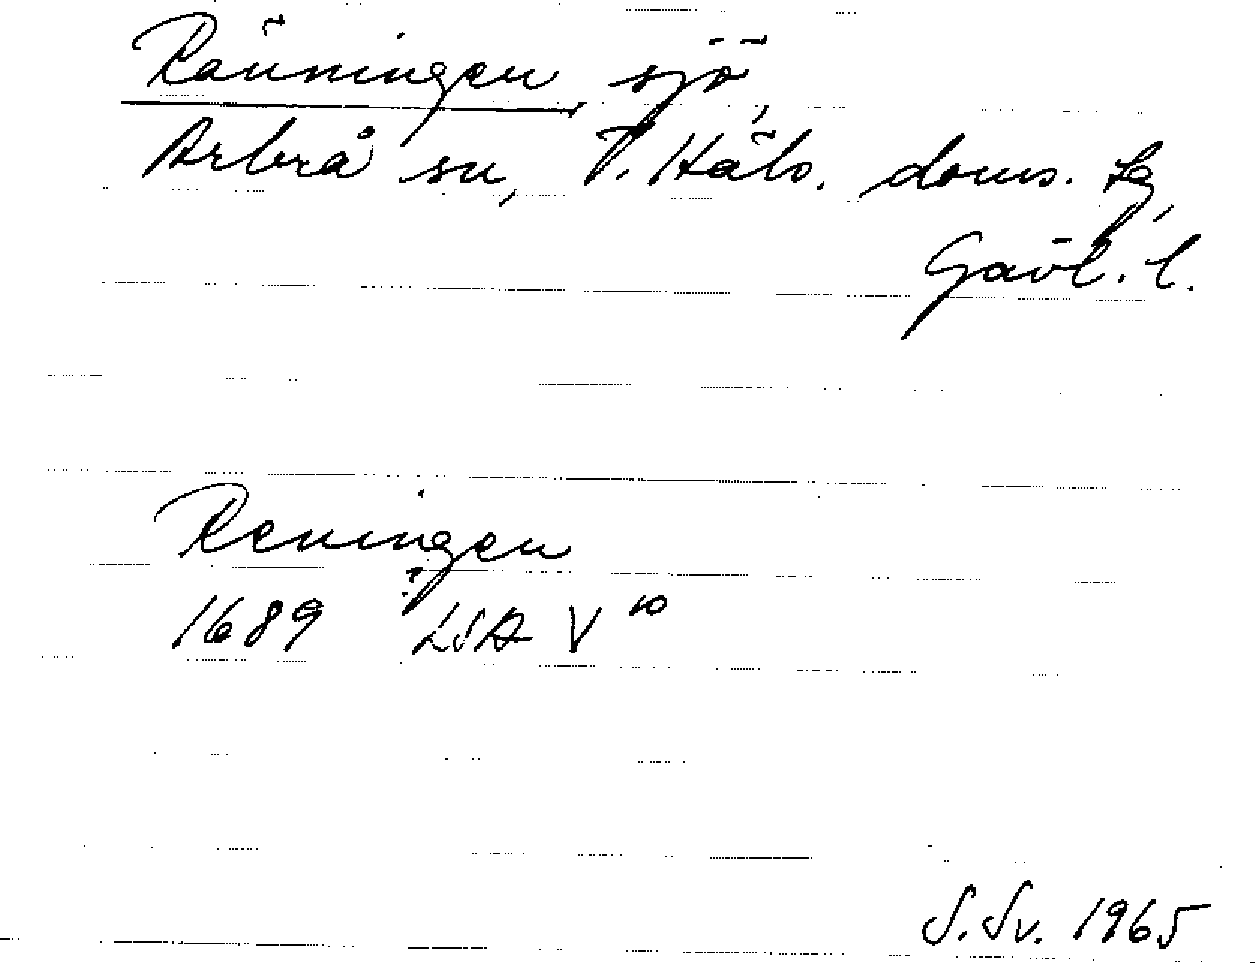 Ränningen sjö,
Arbrå sn, V. Häls. doms. tg,
Gävl. l.
Reningen
1689 LSA V 10
S. Sv. 1965